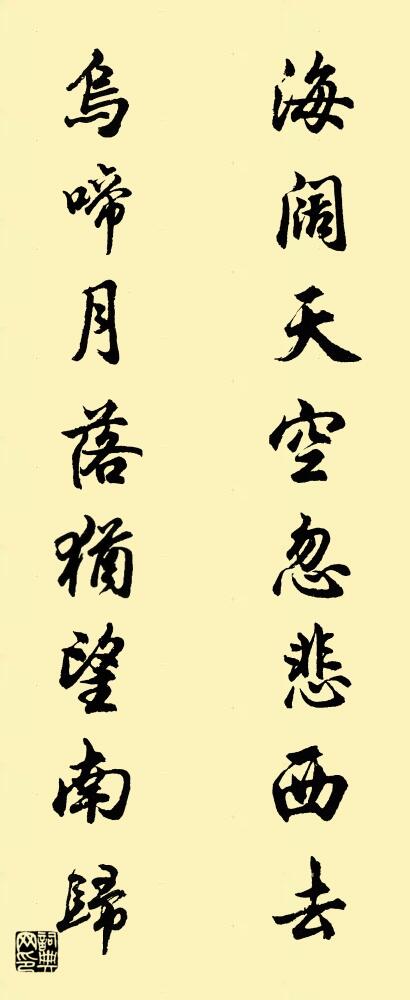 海阔天空忽悲西去
烏啼月落猶望南歸
詞典网印